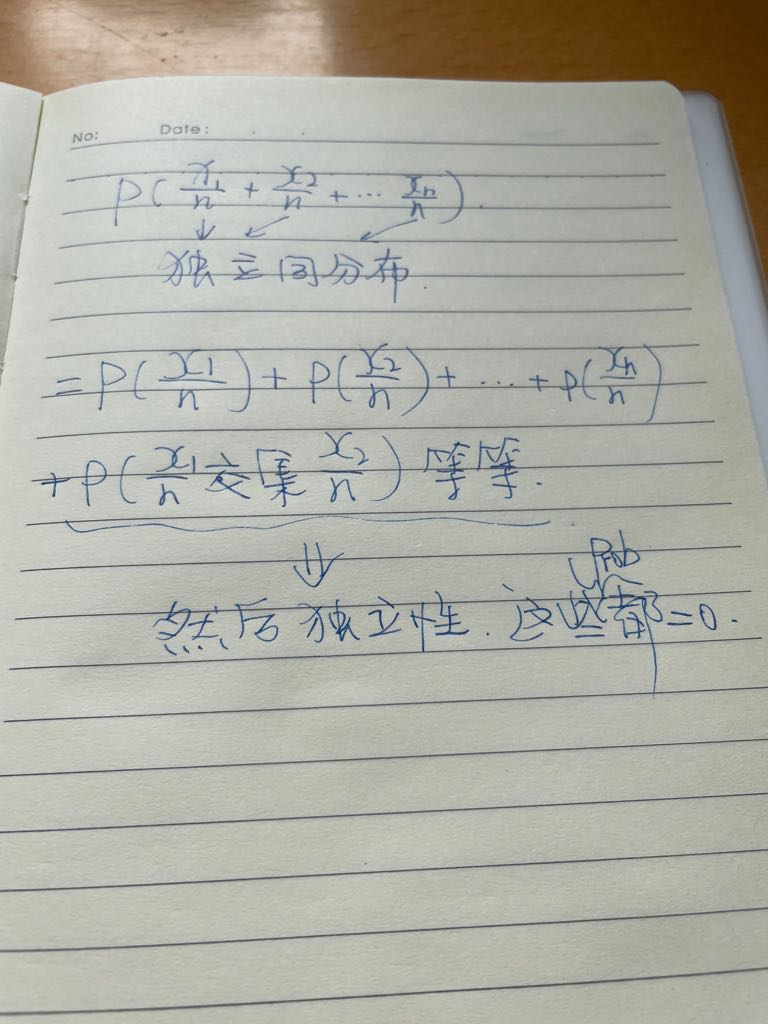 No: Date:
P(x₁/n + x₂/n + ... xₙ/n).
独立同分布.
=P(x₁/n)+P(x₂/n)+...+P(xₙ/n)
+P(x₁/n 交集 x₂/n) 等等.
Prob
然后独立性.这些都=0.